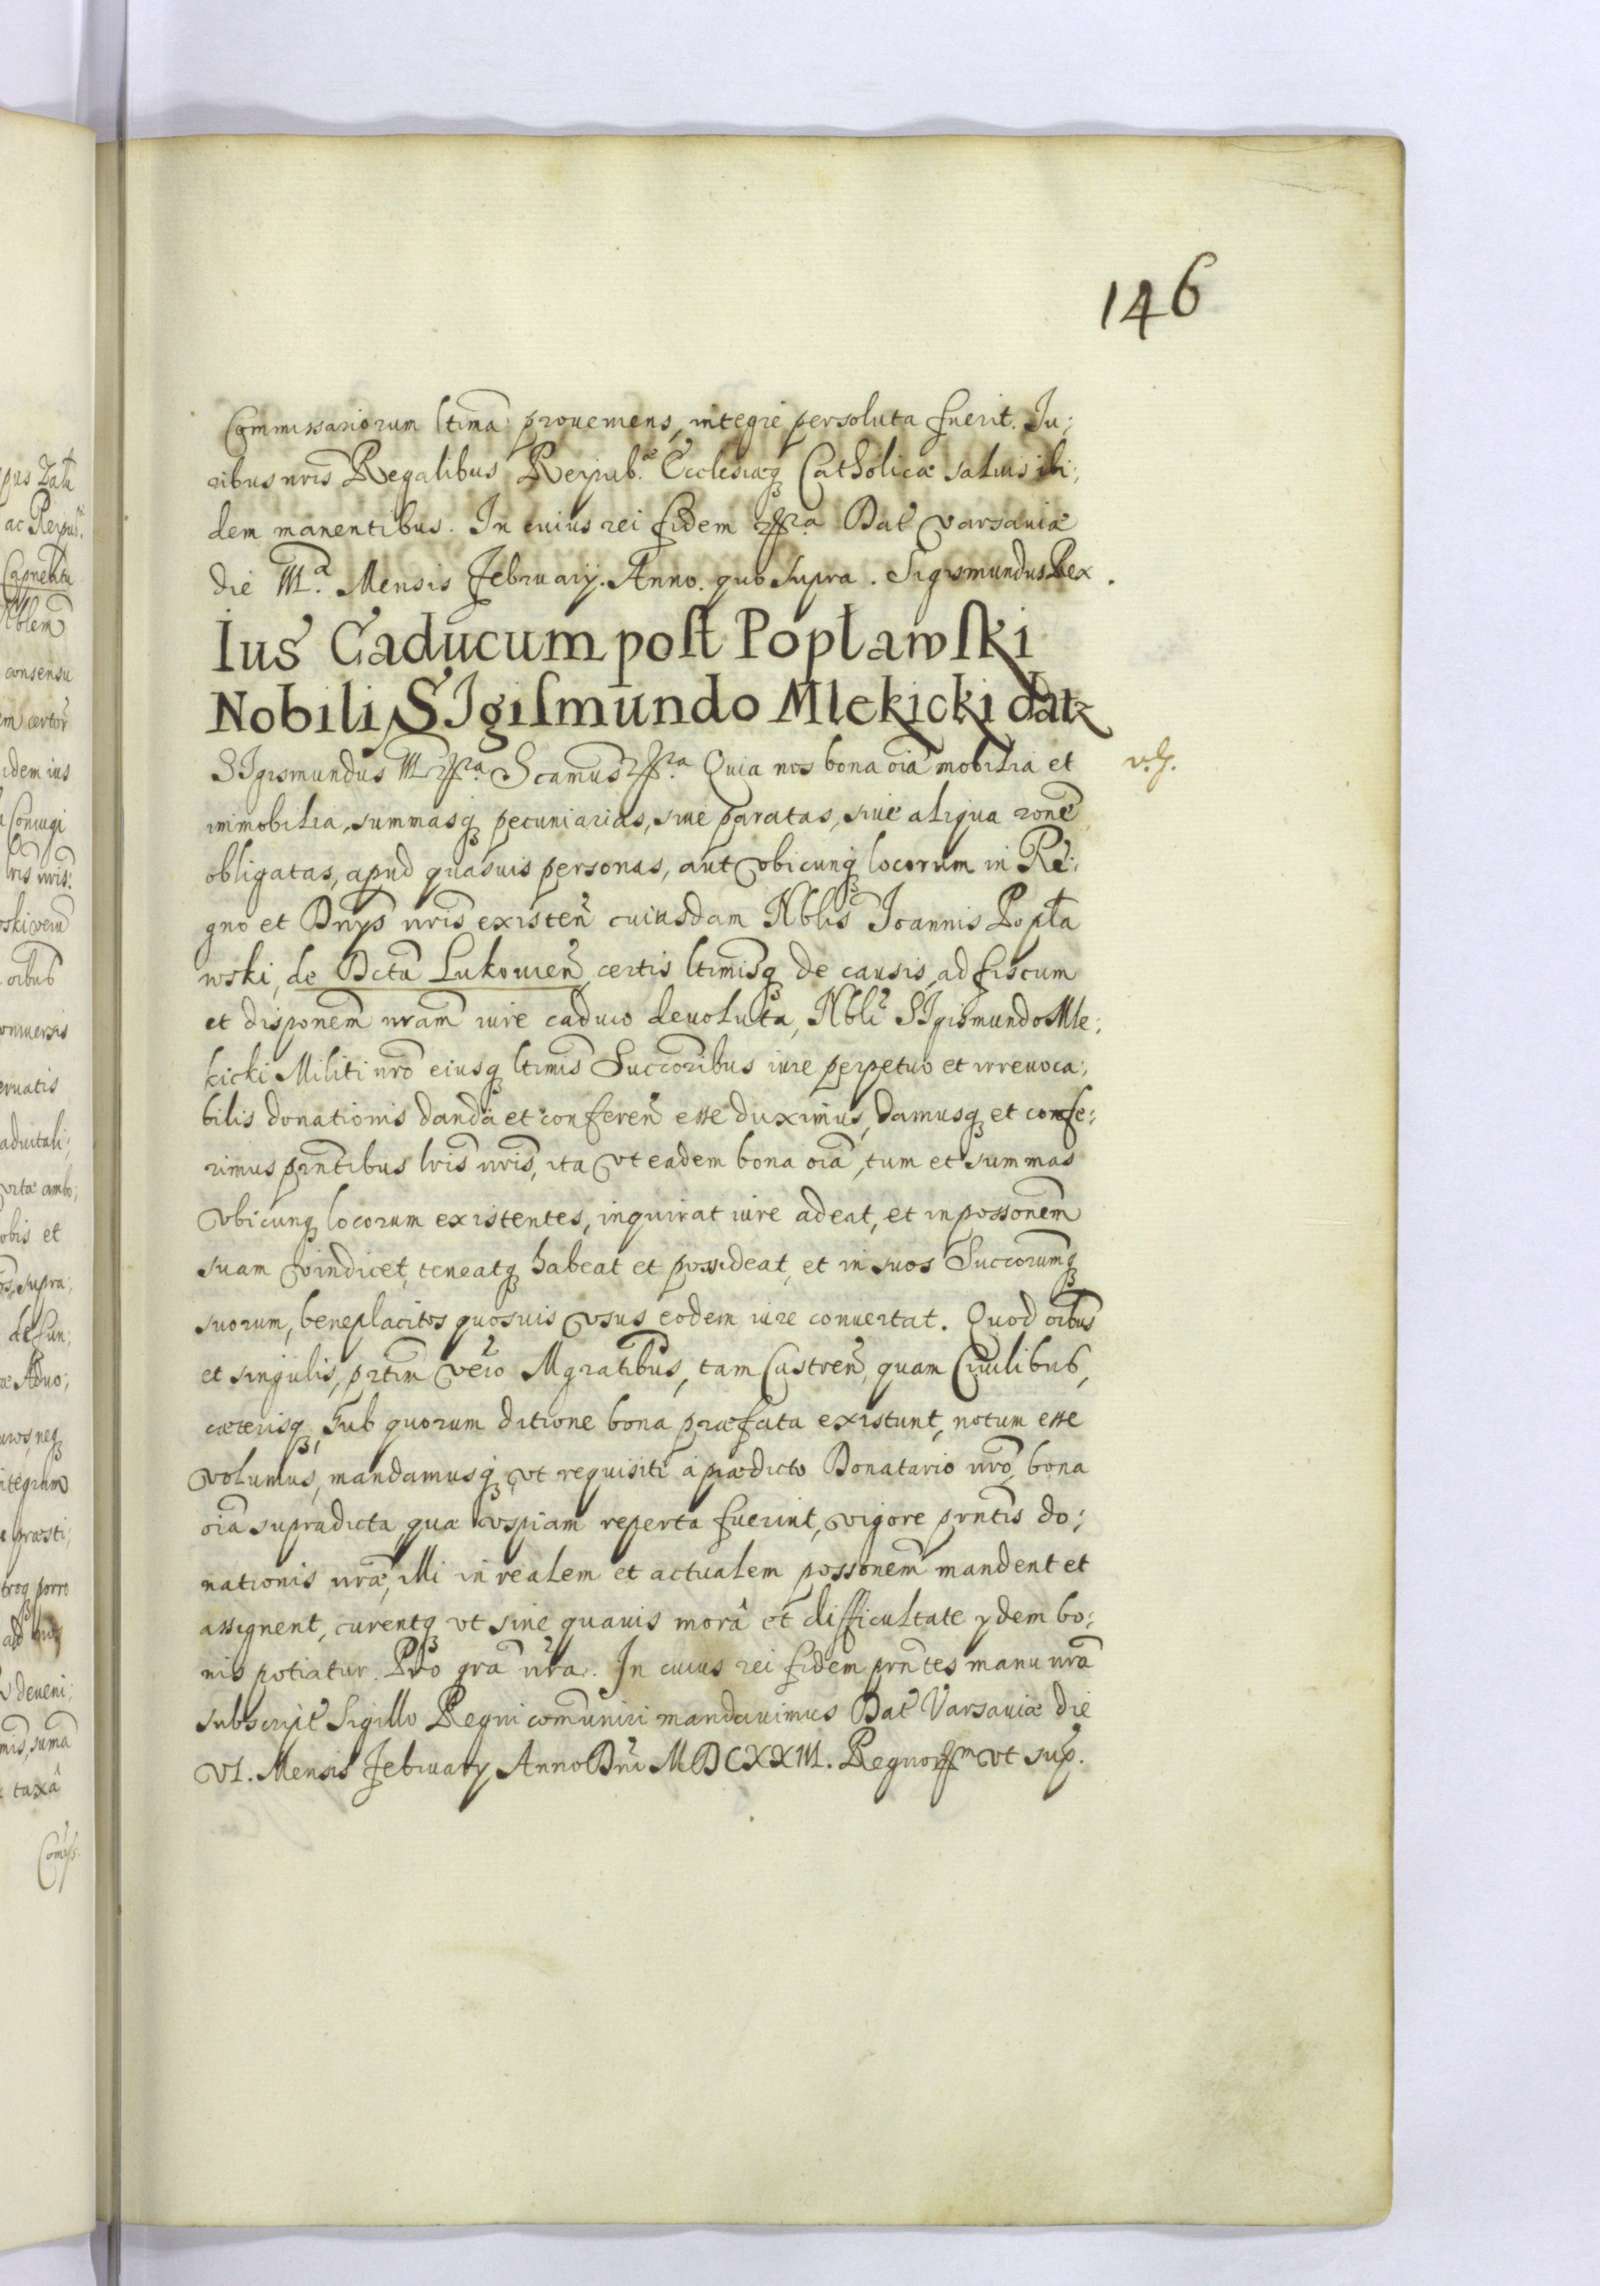 146
Commissariorum ltima proueniens, integre persoluta fuerit. Iu;
ribus nris Regalibus Reipub. Ecclesiæq Catholicæ saluis ibi;
dem manentibus. In cuius rei fidem Dat Varsauiæ
die III.a Mensis February. Anno. quo supra. Sigismundus Rex.
Ius Caducum post Popławski
Nobili SIgismundo Mlekicki dat
SIgismundus III Scamus Quia nos bona oia mobilia et
immobilia, summasq pecuniarias, siue paratas, siue aliqua rone
obligatas, apud quasuis personas, aut vbicunq locorum in Re;
gno et Dnys nris existen cuiusdam Nblis Ioannis Popła
wski, de Dctu Lukouien, certis ltimisq de causis, ad fiscum
et disponem nram iure caduco deuoluta, Nbli SIgismundo Mle;
kicki Militi nro eiusq ltimis Succoribus iure perpetuo et irreuoca;
bilis donationis danda et conferen esse duximus, damusq et confe;
rimus prntibus lris nris, ita vt eadem bona oia, tum et summas
vbicunq locorum existentes, inquirat iure adeat, et in possonem
suam vindicet, teneatq habeat et possideat, et in suos Succorumq
suorum, beneplacitos quosuis vsus eodem iure conuertat. Quod oibus
et singulis, prtim vero Mgratibus, tam Castren quam Ciuilibus,
cæterisq, sub quorum ditione bona præfata existunt, notum esse
volumus, mandamusq vt requisiti à prædicto Donatario nro, bona
oia supradicta, quæ vspiam reperta fuerint, vigore prntis do;
nationis nræ, illi in realem et actualem possonem mandent et
assignent, curentq vt sine quauis morâ et difficultate ydem bo;
nis potiatur. Pro gra nra. In cuius rei fidem prntes manu nra
subscript Sigillo Regni comuniri mandauimus Dat Varsauiæ die
VI. Mensis February Anno Dni MDCXXIII. Regnor vt sup.